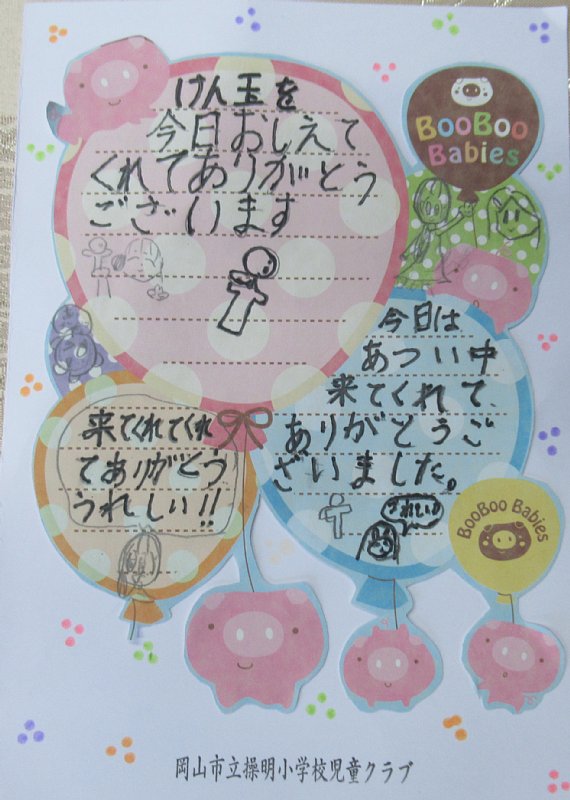 けん玉を
今日おしえて
くれてありがとう
ございます
BooBoo
Babies
今日は
あつい中
来てくれて、
ありがとうご
ざいました。
来てくれてくれ
てありがとう
うれしい!!
BooBoo Babies
岡山市立操明小学校児童クラブ